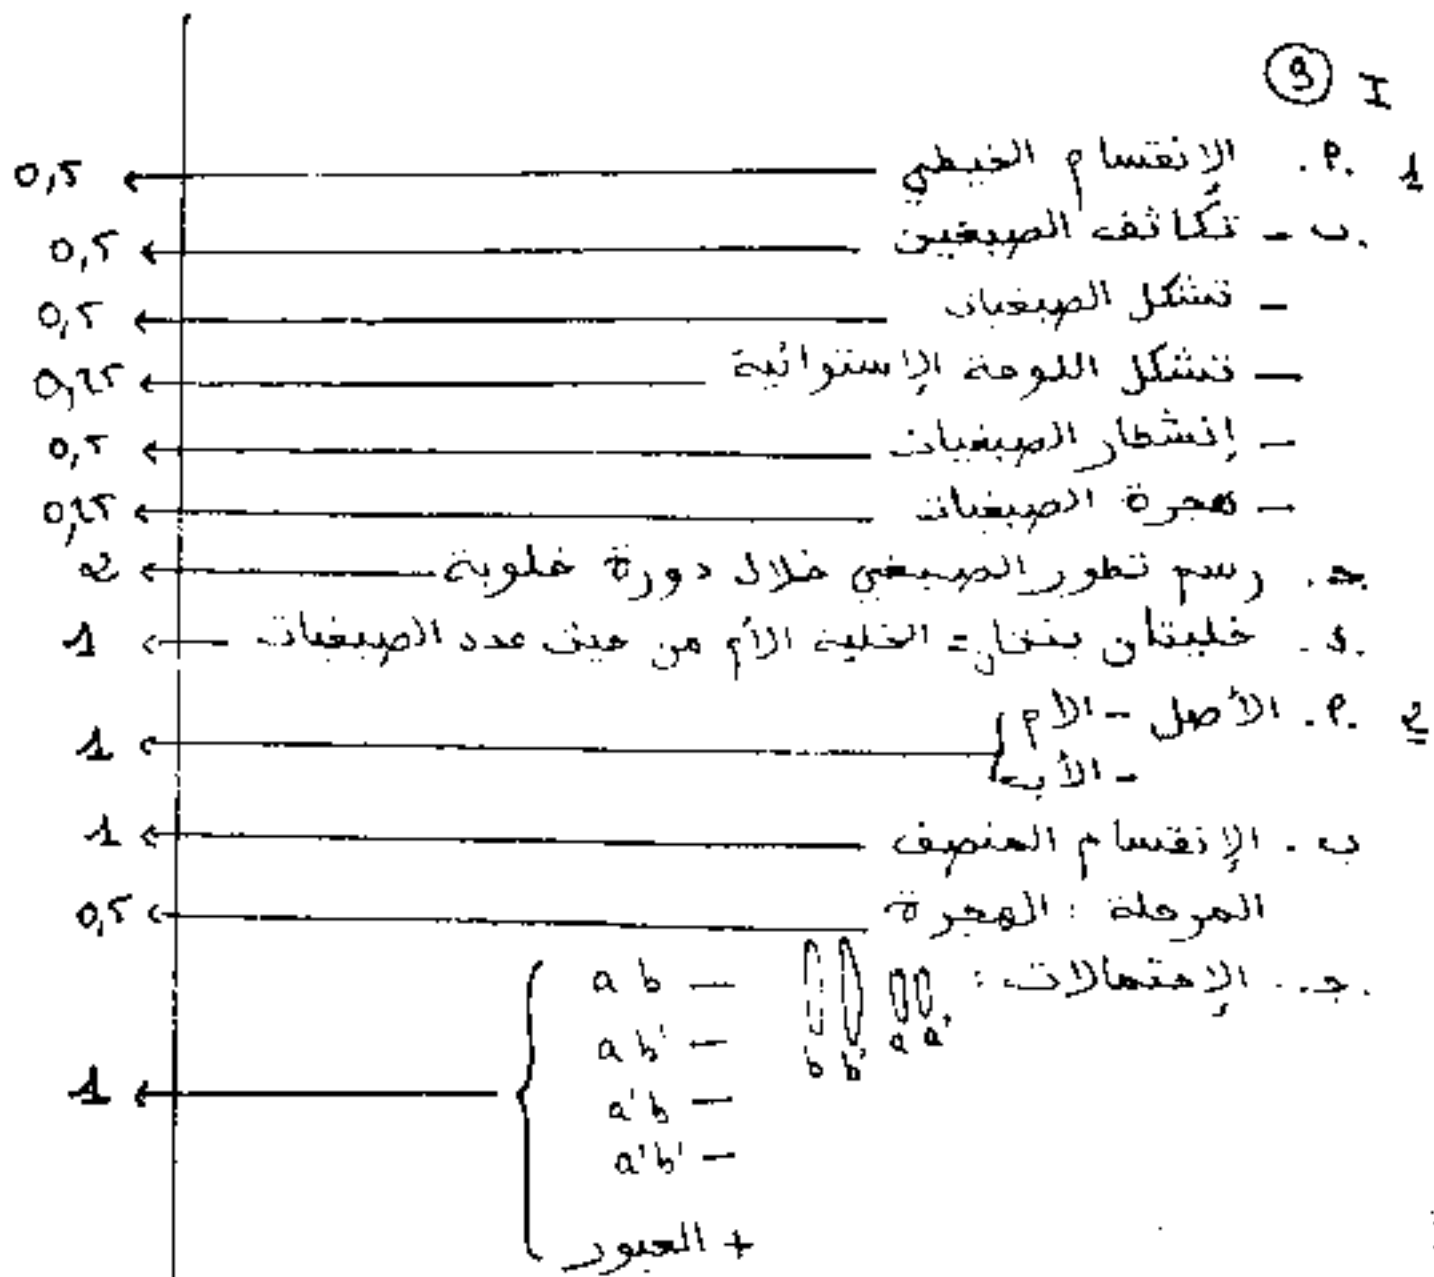 I (9)
1 .P. الإنقسام الخيطي 0,5
ب - تكاثف الصبغين 0,5
- تشكل الصبغيات 0,5
- تشكل اللوحة الإستوائية 0,25
- إنشطار الصبغيات 0,5
- هجرة الصبغيات 0,25
ج. رسم تطور الصبغي خلال دورة خلوية 2
د. خليتان بنتان = الخلية الأم من حيث عدد الصبغيات 1
2 .P. الأصل - الأم
- الأب 1
ب - الإنقسام المنصف 1
المرحلة : الهجرة 0,5
ج. الإحتمالات : a a' b b'
- a b
- a b'
- a'b
- a'b'
+ العبور 1